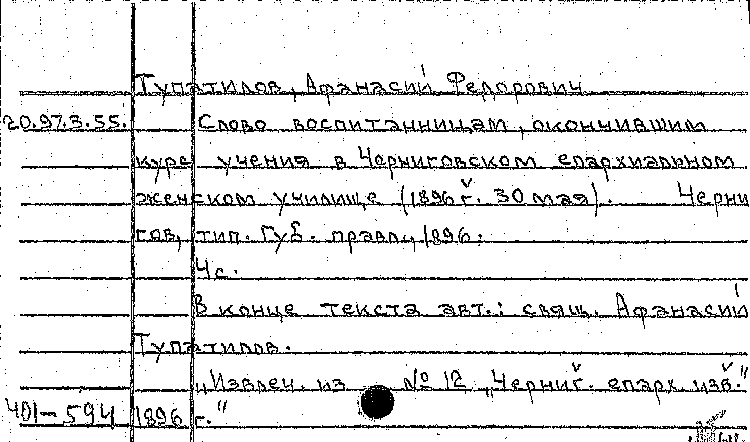 Тупатилов, Афанасий Федорович
20.97.3.55. Слово воспитанницам, окончившим
курс учения в Черниговском епархиальном
женском училище (1896 г. 30 мая). Черни
гов, тип. Губ. правл., 1896.
4 с.
В конце текста авт.: свящ. Афанасий
Тупатилов.
„Извлеч. из № 12 „Черниг. епарх. изв.“
401-594 1896 г.“